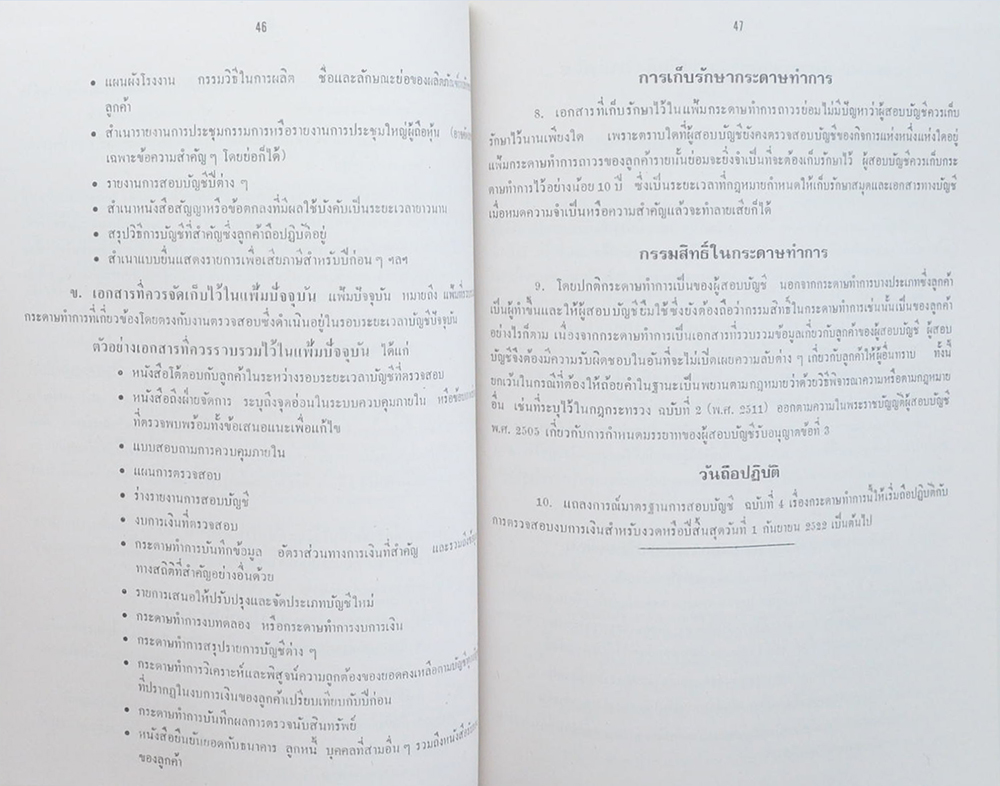 46
• แผนผังโรงงาน กรรมวิธีในการผลิต ชื่อและลักษณะย่อของผลิตภัณฑ์
ลูกค้า
• สำเนารายงานการประชุมกรรมการหรือรายงานการประชุมใหญ่ผู้ถือหุ้น
เฉพาะข้อความสำคัญๆ โดยย่อก็ได้)
• รายงานการสอบบัญชีปีต่าง ๆ
• สำเนาหนังสือสัญญาหรือข้อตกลงที่มีผลใช้บังคับเป็นระยะเวลายาวนาน
• สรุปวิธีการบัญชีที่สำคัญซึ่งลูกค้าถือปฏิบัติอยู่
• สำเนาแบบยื่นแสดงรายการเพื่อเสียภาษีสำหรับปีก่อน ๆ ฯลฯ
ข. เอกสารที่ควรจัดเก็บไว้ในแฟ้มปัจจุบัน แฟ้มปัจจุบัน หมายถึง
กระดาษทำการที่เกี่ยวข้องโดยตรงกับงานตรวจสอบซึ่งดำเนินอยู่ในรอบระยะเวลาบัญชีปัจจุบัน
ตัวอย่างเอกสารที่ควรรวบรวมไว้ในแฟ้มปัจจุบัน ได้แก่
• หนังสือโต้ตอบกับลูกค้าในระหว่างรอบระยะเวลาบัญชีที่ตรวจสอบ
• หนังสือถึงฝ่ายจัดการ ระบุถึงจุดอ่อนในระบบควบคุมภายใน
ที่ตรวจพบพร้อมทั้งข้อเสนอแนะเพื่อแก้ไข
• แบบสอบถามการควบคุมภายใน
• แผนการตรวจสอบ
• ร่างรายงานการสอบบัญชี
• งบการเงินที่ตรวจสอบ
• กระดาษทำการบันทึกข้อมูล อัตราส่วนทางการเงินที่สำคัญ
ทางสถิติที่สำคัญอย่างอื่นด้วย
• รายการเสนอให้ปรับปรุงและจัดประเภทบัญชีใหม่
• กระดาษทำการงบทดลอง หรือกระดาษทำการงบการเงิน
• กระดาษทำการสรุปรายการบัญชีต่าง ๆ
• กระดาษทำการวิเคราะห์และพิสูจน์ความถูกต้องของยอดคงเหลือตามบัญชี
ที่ปรากฏในงบการเงินของลูกค้าเปรียบเทียบกับปีก่อน
• กระดาษทำการบันทึกผลการตรวจนับสินทรัพย์
• หนังสือยืนยันยอดกับธนาคาร ลูกหนี้ บุคคลที่สามอื่นๆ
ของลูกค้า
47
การเก็บรักษากระดาษทำการ
8. เอกสารที่เก็บรักษาไว้ในแฟ้มกระดาษทำการถาวรย่อมไม่มีปัญหาว่าผู้สอบบัญชีควรเก็บ
รักษาไว้นานเพียงใด เพราะตราบใดที่ผู้สอบบัญชียังคงตรวจสอบบัญชีของกิจการแห่งหนึ่งแห่งใดอยู่
แฟ้มกระดาษทำการถาวรของลูกค้ารายนั้นย่อมจะยิ่งจำเป็นที่จะต้องเก็บรักษาไว้ ผู้สอบบัญชีควรเก็บกระ
ดาษทำการไว้อย่างน้อย 10 ปี ซึ่งเป็นระยะเวลาที่กฎหมายกำหนดให้เก็บรักษาสมุดและเอกสารทางบัญชี
เมื่อหมดความจำเป็นหรือความสำคัญแล้วจะทำลายเสียก็ได้
กรรมสิทธิ์ในกระดาษทำการ
9. โดยปกติกระดาษทำการเป็นของผู้สอบบัญชี นอกจากกระดาษทำการบางประเภทซึ่งลูกค้า
เป็นผู้ทำขึ้นและให้ผู้สอบบัญชียืมใช้ซึ่งยังต้องถือว่ากรรมสิทธิ์ในกระดาษทำการเช่นนั้นเป็นของลูกค้า
อย่างไรก็ตาม เนื่องจากกระดาษทำการเป็นเอกสารที่รวบรวมข้อมูลเกี่ยวกับลูกค้าของผู้สอบบัญชี ผู้สอบ
บัญชีจึงต้องมีความรับผิดชอบในอันที่จะไม่เปิดเผยความลับต่าง ๆ เกี่ยวกับลูกค้าให้ผู้อื่นทราบ ทั้งนี้
ยกเว้นในกรณีที่ต้องให้ถ้อยคำในฐานะเป็นพยานตามกฎหมายว่าด้วยวิธีพิจารณาความหรือตามกฎหมาย
อื่น เช่นที่ระบุไว้ในกฎกระทรวง ฉบับที่ 2 (พ.ศ. 2511) ออกตามความในพระราชบัญญัติผู้สอบบัญชี
พ.ศ. 2505 เกี่ยวกับการกำหนดมรรยาทของผู้สอบบัญชีรับอนุญาตข้อที่ 3
วันถือปฏิบัติ
10. แถลงการณ์มาตรฐานการสอบบัญชี ฉบับที่ 4 เรื่องกระดาษทำการนี้ให้เริ่มถือปฏิบัติกับ
การตรวจสอบงบการเงินสำหรับงวดหรือปีสิ้นสุดวันที่ 1 กันยายน 2522 เป็นต้นไป